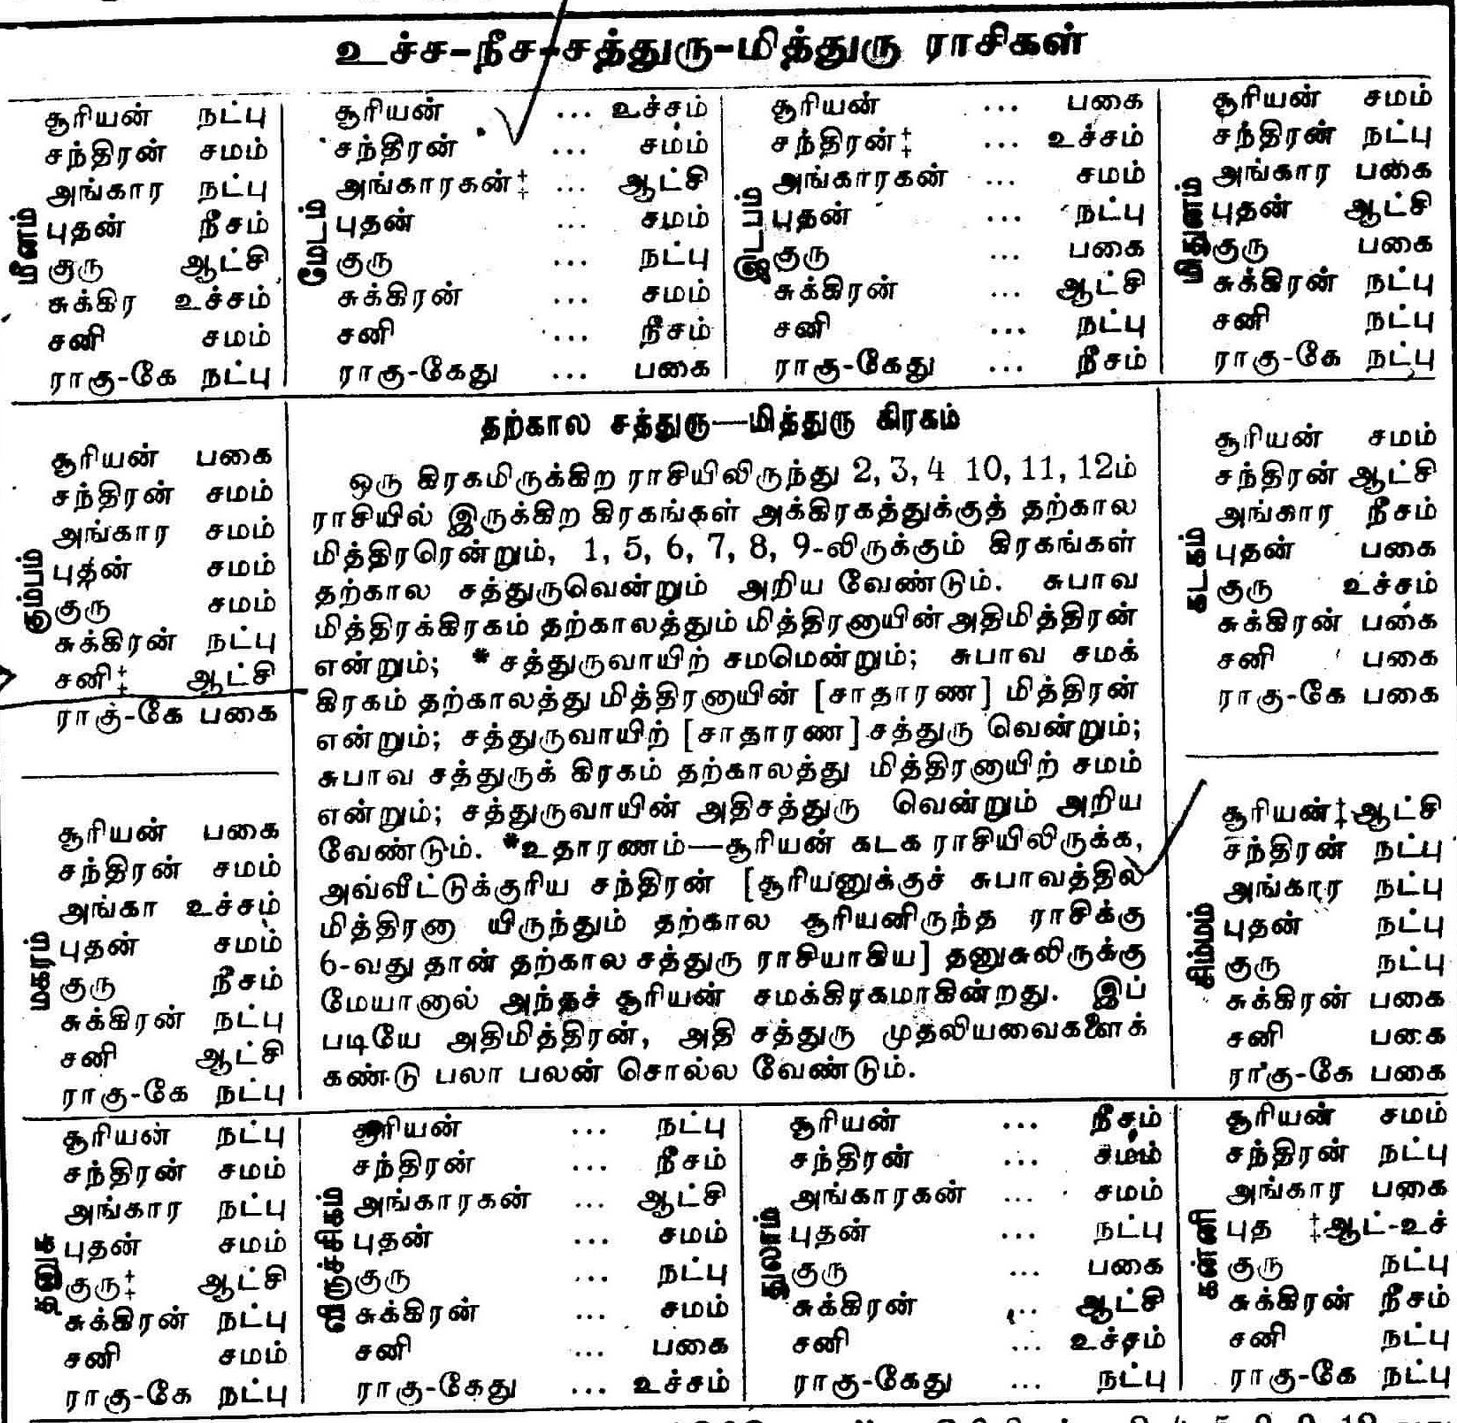 உச்ச-நீச-சத்துரு-மித்துரு ராசிகள்
மீனம்
சூரியன் நட்பு
சந்திரன் சமம்
அங்கார நட்பு
புதன் நீசம்
குரு ஆட்சி
சுக்கிர உச்சம்
சனி சமம்
ராகு-கே நட்பு
மேடம்
சூரியன் ... உச்சம்
சந்திரன் ... சமம்
அங்காரகன்‡ ... ஆட்சி
புதன் ... சமம்
குரு ... நட்பு
சுக்கிரன் ... சமம்
சனி ... நீசம்
ராகு-கேது ... பகை
இடபம்
சூரியன் ... பகை
சந்திரன்‡ ... உச்சம்
அங்காரகன் ... சமம்
புதன் ... நட்பு
குரு ... பகை
சுக்கிரன் ... ஆட்சி
சனி ... நட்பு
ராகு-கேது ... நீசம்
மிதுனம்
சூரியன் சமம்
சந்திரன் நட்பு
அங்கார பகை
புதன் ஆட்சி
குரு பகை
சுக்கிரன் நட்பு
சனி நட்பு
ராகு-கே நட்பு
கும்பம்
சூரியன் பகை
சந்திரன் சமம்
அங்கார சமம்
புதன் சமம்
குரு சமம்
சுக்கிரன் நட்பு
சனி‡ ஆட்சி
ராகு-கே பகை
மகரம்
சூரியன் பகை
சந்திரன் சமம்
அங்கா உச்சம்
புதன் சமம்
குரு நீசம்
சுக்கிரன் நட்பு
சனி ஆட்சி
ராகு-கே நட்பு
தற்கால சத்துரு—மித்துரு கிரகம்
ஒரு கிரகமிருக்கிற ராசியிலிருந்து 2, 3, 4 10, 11, 12ம்
ராசியில் இருக்கிற கிரகங்கள் அக்கிரகத்துக்குத் தற்கால
மித்திரரென்றும், 1, 5, 6, 7, 8, 9-லிருக்கும் கிரகங்கள்
தற்கால சத்துருவென்றும் அறிய வேண்டும். சுபாவ
மித்திரக்கிரகம் தற்காலத்தும் மித்திரனாயின் அதிமித்திரன்
என்றும்; * சத்துருவாயிற் சமமென்றும்; சுபாவ சமக்
கிரகம் தற்காலத்து மித்திரனாயின் [சாதாரண] மித்திரன்
என்றும்; சத்துருவாயிற் [சாதாரண] சத்துரு வென்றும்;
சுபாவ சத்துருக் கிரகம் தற்காலத்து மித்திரனாயிற் சமம்
என்றும்; சத்துருவாயின் அதிசத்துரு வென்றும் அறிய
வேண்டும். *உதாரணம்—சூரியன் கடக ராசியிலிருக்க,
அவ்வீட்டுக்குரிய சந்திரன் [சூரியனுக்குச் சுபாவத்தில்
மித்திரனா யிருந்தும் தற்கால சூரியனிருந்த ராசிக்கு
6-வது தான் தற்கால சத்துரு ராசியாகிய] தனுசுலிருக்கு
மேயானால் அந்தச் சூரியன் சமக்கிரகமாகின்றது. இப்
படியே அதிமித்திரன், அதி சத்துரு முதலியவைகளைக்
கண்டு பலா பலன் சொல்ல வேண்டும்.
கடகம்
சூரியன் சமம்
சந்திரன் ஆட்சி
அங்கார நீசம்
புதன் பகை
குரு உச்சம்
சுக்கிரன் பகை
சனி பகை
ராகு-கே பகை
சிம்மம்
சூரியன்‡ ஆட்சி
சந்திரன் நட்பு
அங்கார நட்பு
புதன் நட்பு
குரு நட்பு
சுக்கிரன் பகை
சனி பகை
ராகு-கே பகை
தனுசு
சூரியன் நட்பு
சந்திரன் சமம்
அங்கார நட்பு
புதன் சமம்
குரு‡ ஆட்சி
சுக்கிரன் நட்பு
சனி சமம்
ராகு-கே நட்பு
விருச்சிகம்
சூரியன் ... நட்பு
சந்திரன் ... நீசம்
அங்காரகன் ... ஆட்சி
புதன் ... சமம்
குரு ... நட்பு
சுக்கிரன் ... சமம்
சனி ... பகை
ராகு-கேது ... உச்சம்
துலாம்
சூரியன் ... நீசம்
சந்திரன் ... சமம்
அங்காரகன் ... சமம்
புதன் ... நட்பு
குரு ... பகை
சுக்கிரன் ... ஆட்சி
சனி ... உச்சம்
ராகு-கேது ... நட்பு
கன்னி
சூரியன் சமம்
சந்திரன் நட்பு
அங்கார பகை
புத ‡ஆட்-உச்
குரு நட்பு
சுக்கிரன் நீசம்
சனி நட்பு
ராகு-கே நட்பு